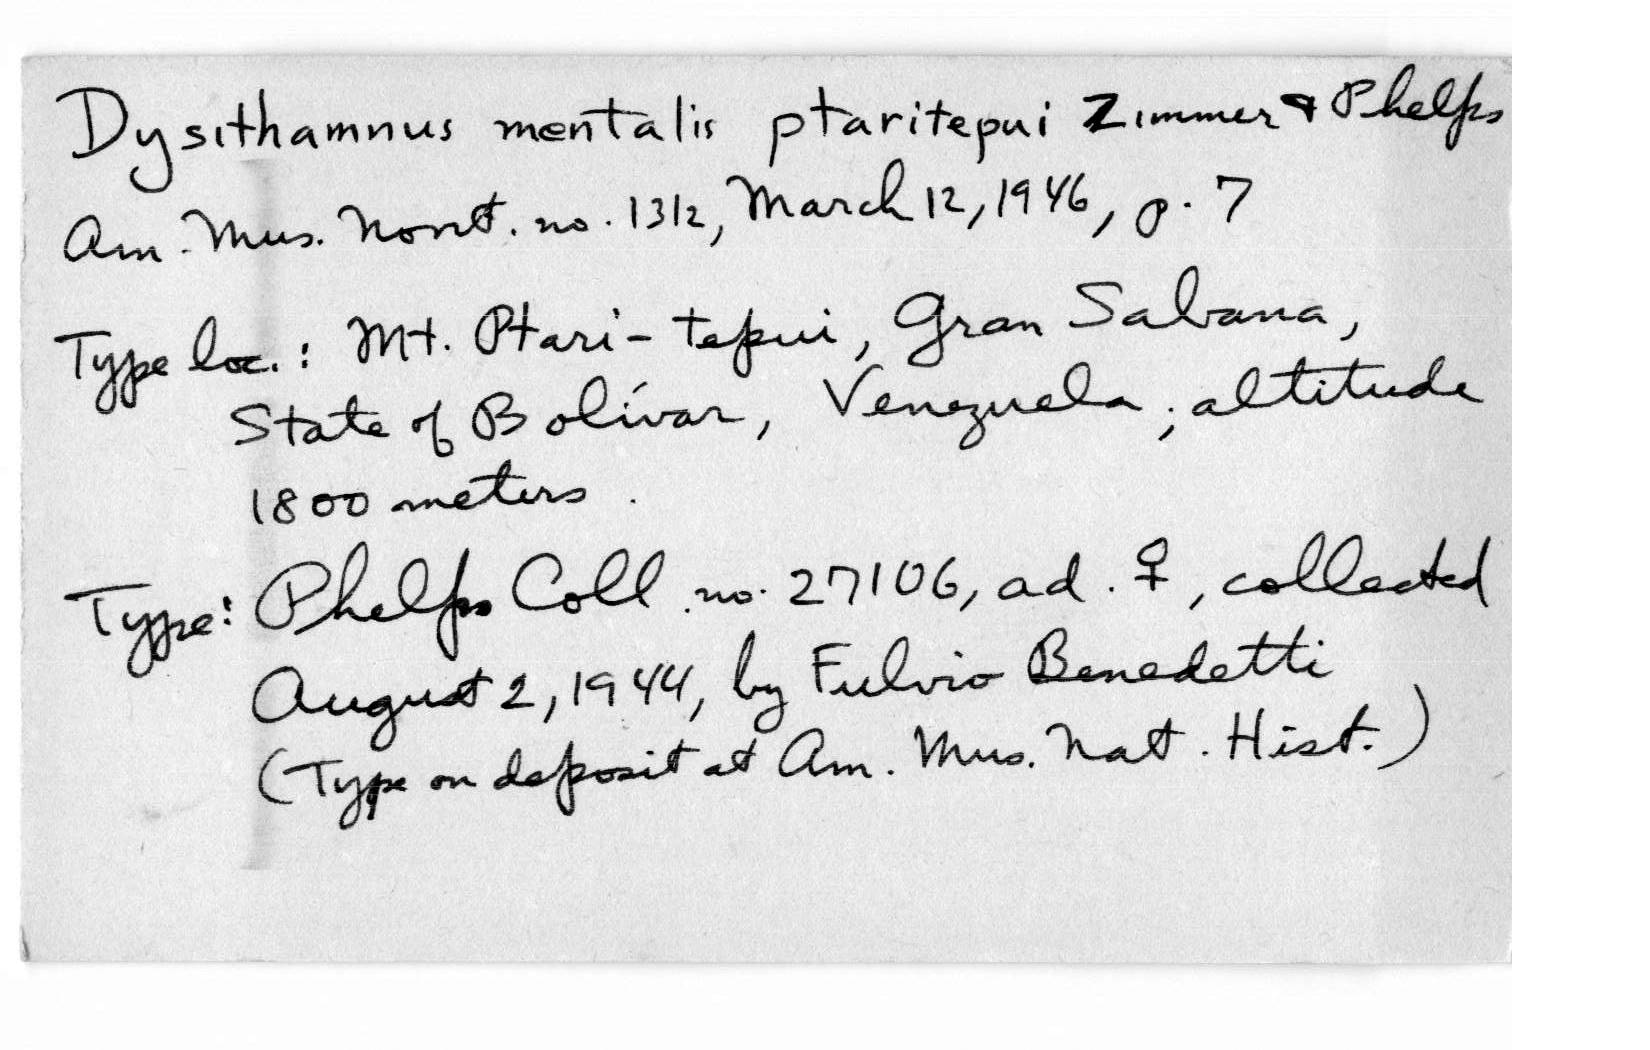 Dysithamnus mentalis ptaritepui Zimmer & Phelps
Am. Mus. Novit. no. 1312, March 12, 1946, p. 7
Type loc.: Mt. Ptari-tepui, Gran Sabana,
State of Bolívar, Venezuela; altitude
1800 meters.
Type: Phelps Coll. no. 27106, ad. ♀, collected
August 2, 1944, by Fulvio Benedetti
(Type on deposit at Am. Mus. Nat. Hist.)